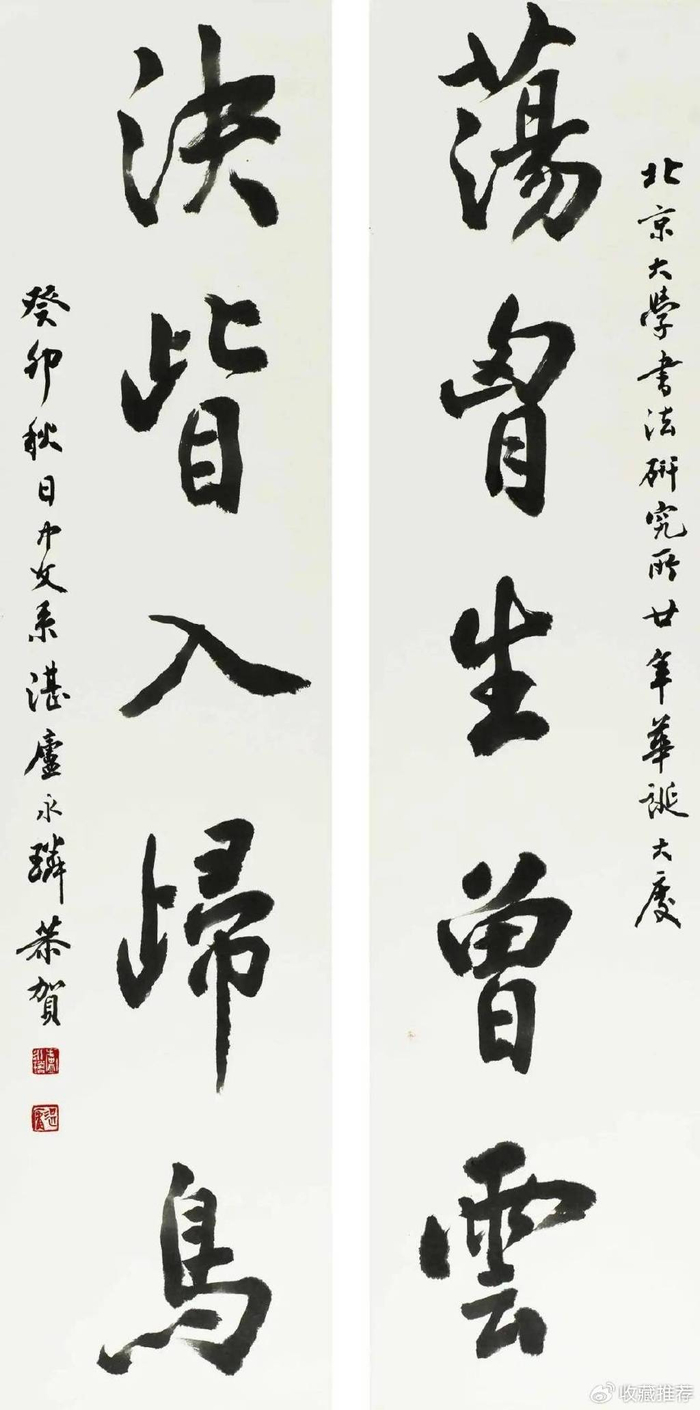 北京大學書法研究所廿年華誕大慶
蕩胷生曾雲
決眥入歸鳥
癸卯秋日中文系湛廬永璘恭賀
收藏推荐